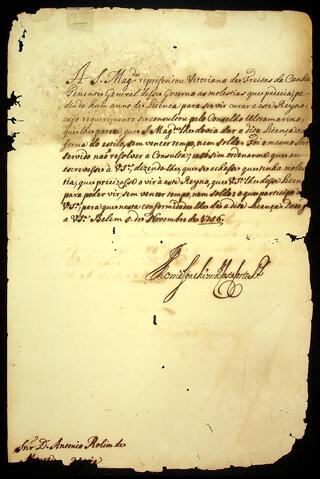 A S. Mag.de representou Vitoriano de Freitas da Cunha
Tenente General desse Governo as molestias que padecia, pe-
dindo hum anno de Licença para se vir curar a este Reyno:
cujo requerimento se consultou pelo Conselho Ultramarino,
que lhe parece que S. Mag.de lhe devia dar a dita Licença, na
forma do estilo, sem vencer tempo, nem soldo. Foi o mesmo Snr
servido não resolver a Consulta; mas sim ordenarme que eu
escrevesse a V.S., dizendolhe, que se achasse que tinha moles-
tia, que precizasse o vir a este Reyno, que V.S. lhe desse Licença
para poder vir, sem vencer tempo, nem soldo: o que participo a
V.S. para que nesta conformidade lhe dê a dita licença. Deos g.
a V.S. Belem de Novembro de 1756.
Thomé Joachim da Costa Corte Rl.
Snr. D. Antonio Rolim de